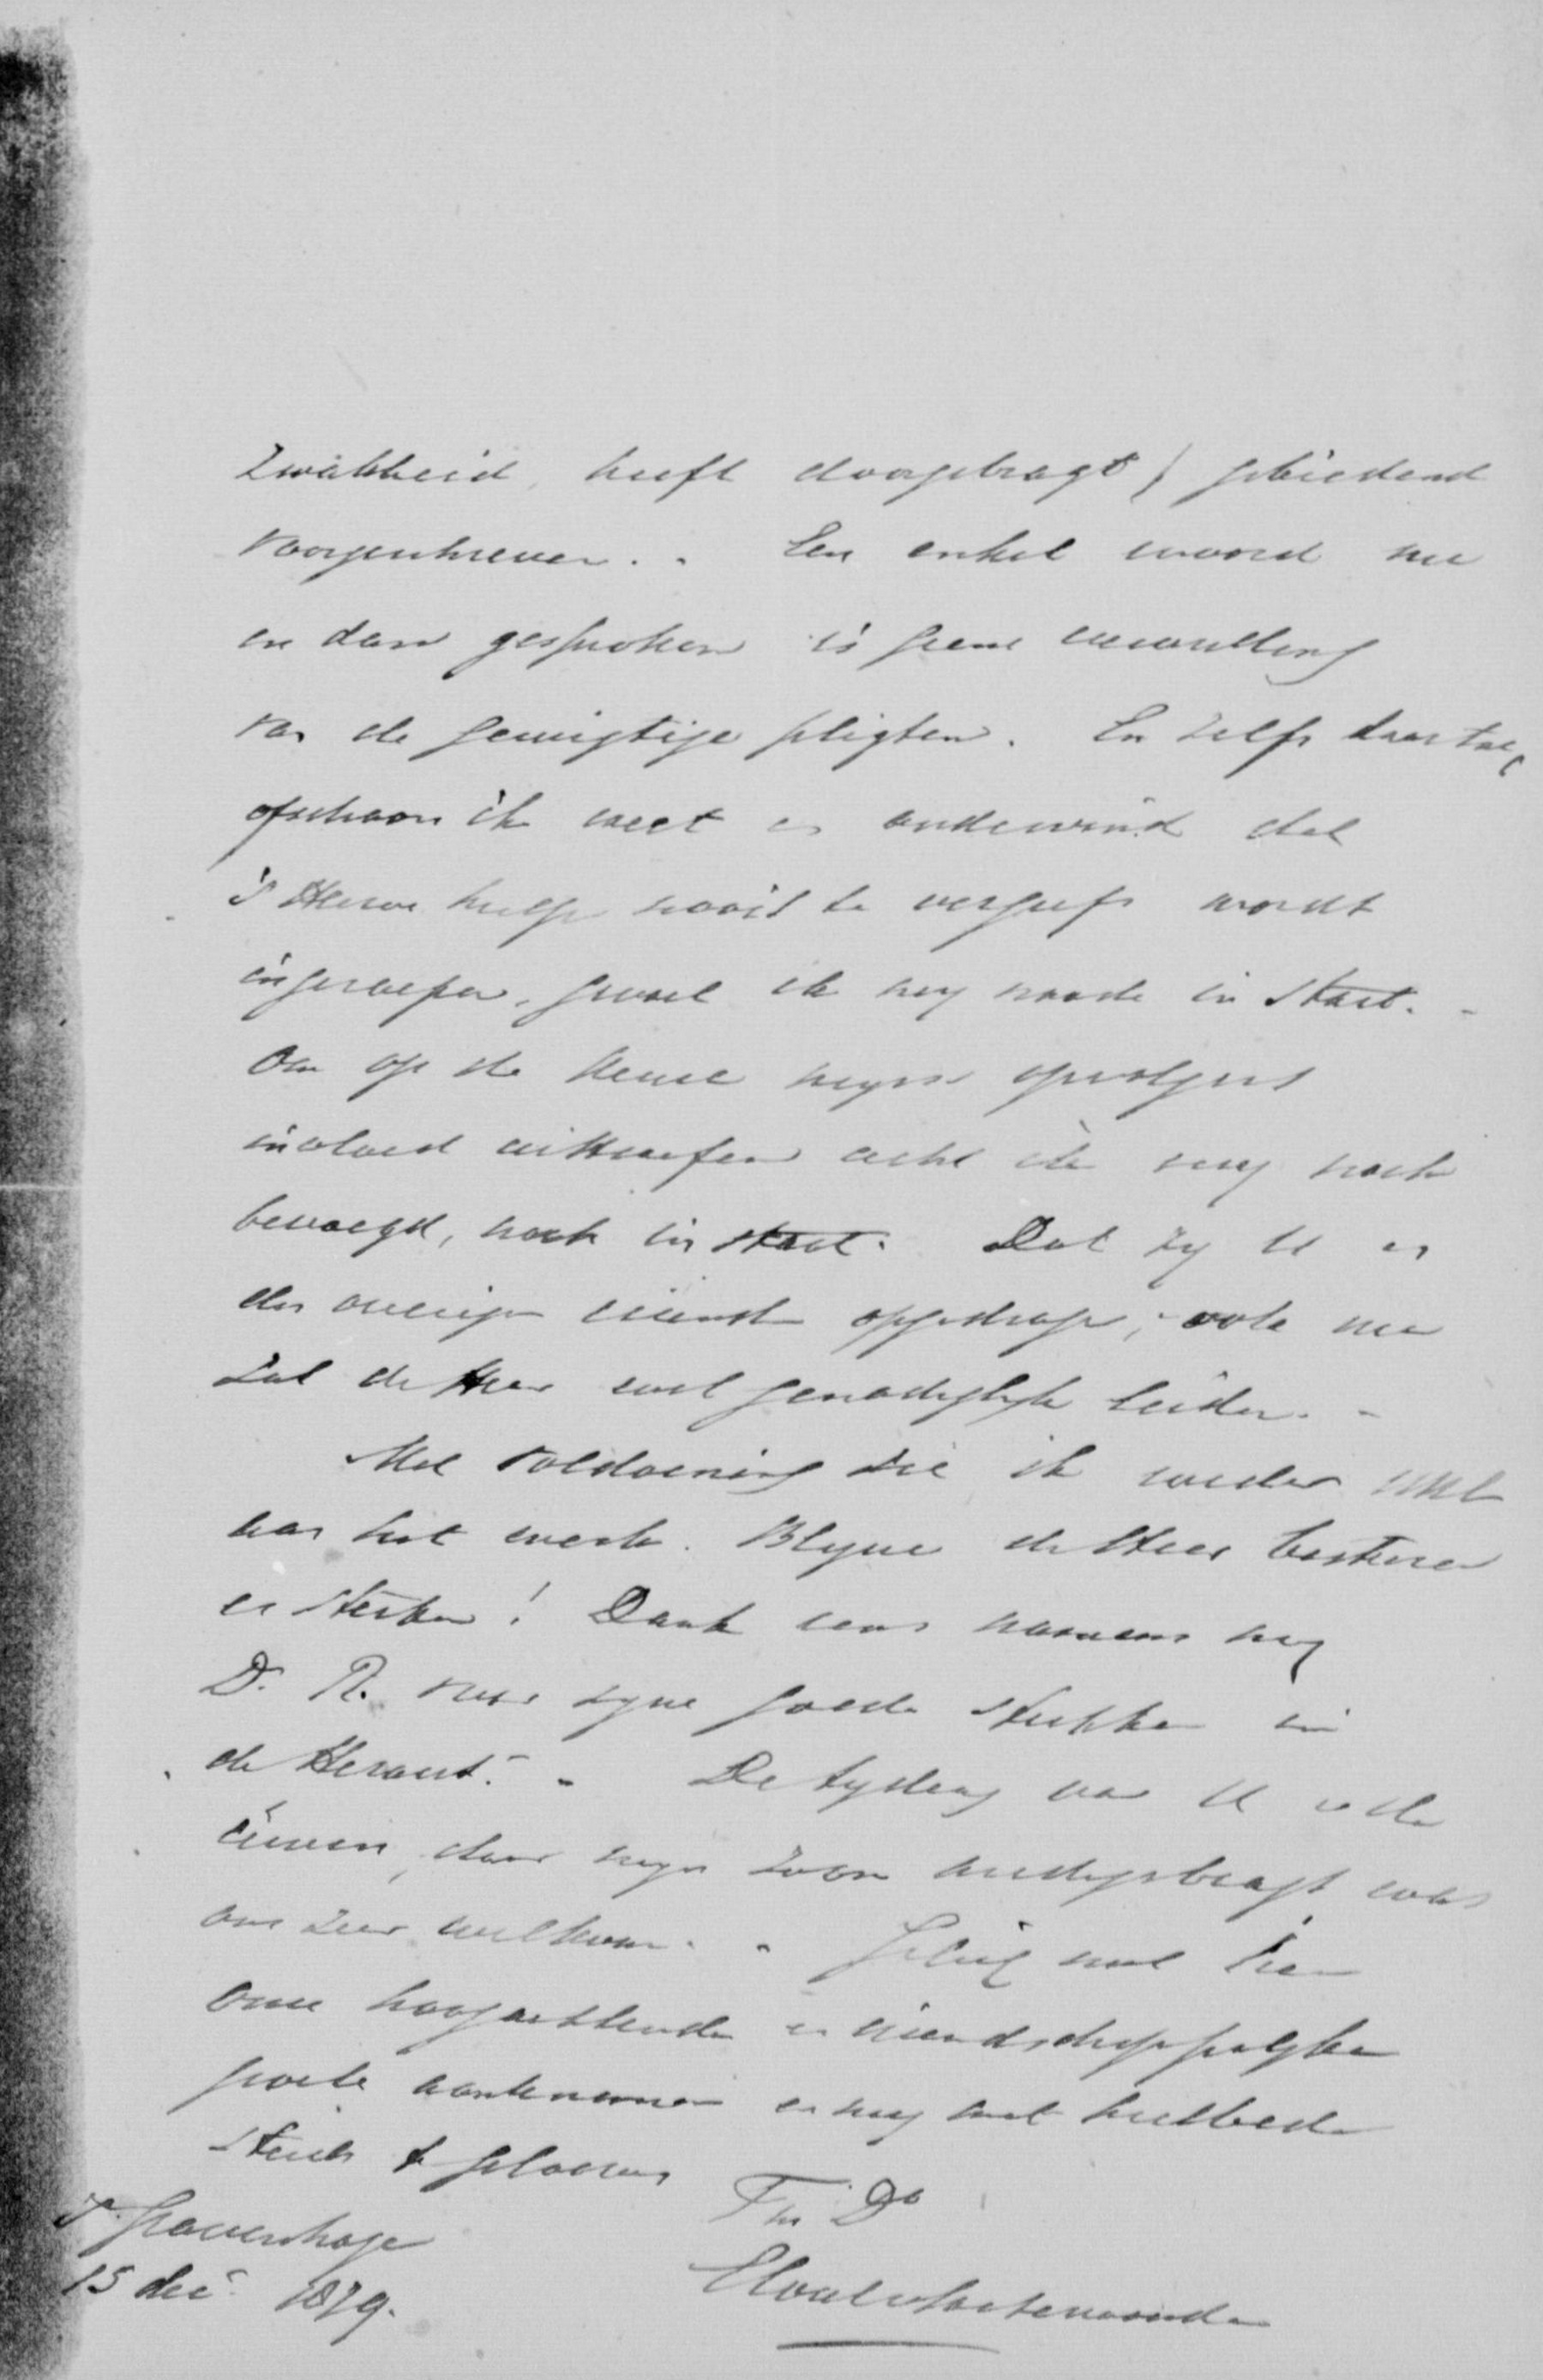 zwakheid, heeft doorgebragt) gebiedend
voorgeschreven. - Een enkel woord nu
en dan gesproken is geene vervulling
van de gewigtige pligten. En zelfs daartoe,
ofschoon ik weet en ondervind dat
's Heeren hulp nooit te vergeefs wordt
ingeroepen, gevoel ik my noode in staat. -
Om op de keuze myns opvolgers
invloed uitteoefenen acht ik my noch
bevoegd, noch in staat. Dat zy U en
den overigen vrienden opgedragen; - ook nu
zal de Heer wel genadiglyk leiden. -
Met voldoening zie ik weder
aan het werk. Blyve de Heer besturen
en sterken! Dank eens namens my
Dr. R. voor zyne goede stukken in
de Heraut. - De tyding van U en de
uwen, door myn zoon medegebragt was
ons zeer welkom. - Gelief met hen
onze hoogachtende en vriendschappelyke
groete aantenemen en my met heilbede
steeds te gelooven
T. Dv
Elout v Soeterwoude
's Gravenhage
15 dec. 1879.